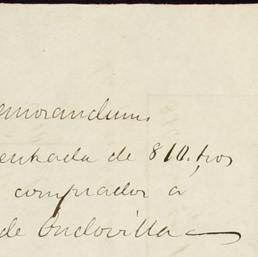 emorandum.
entrada de 810. tros
comprador á
de Ondovilla